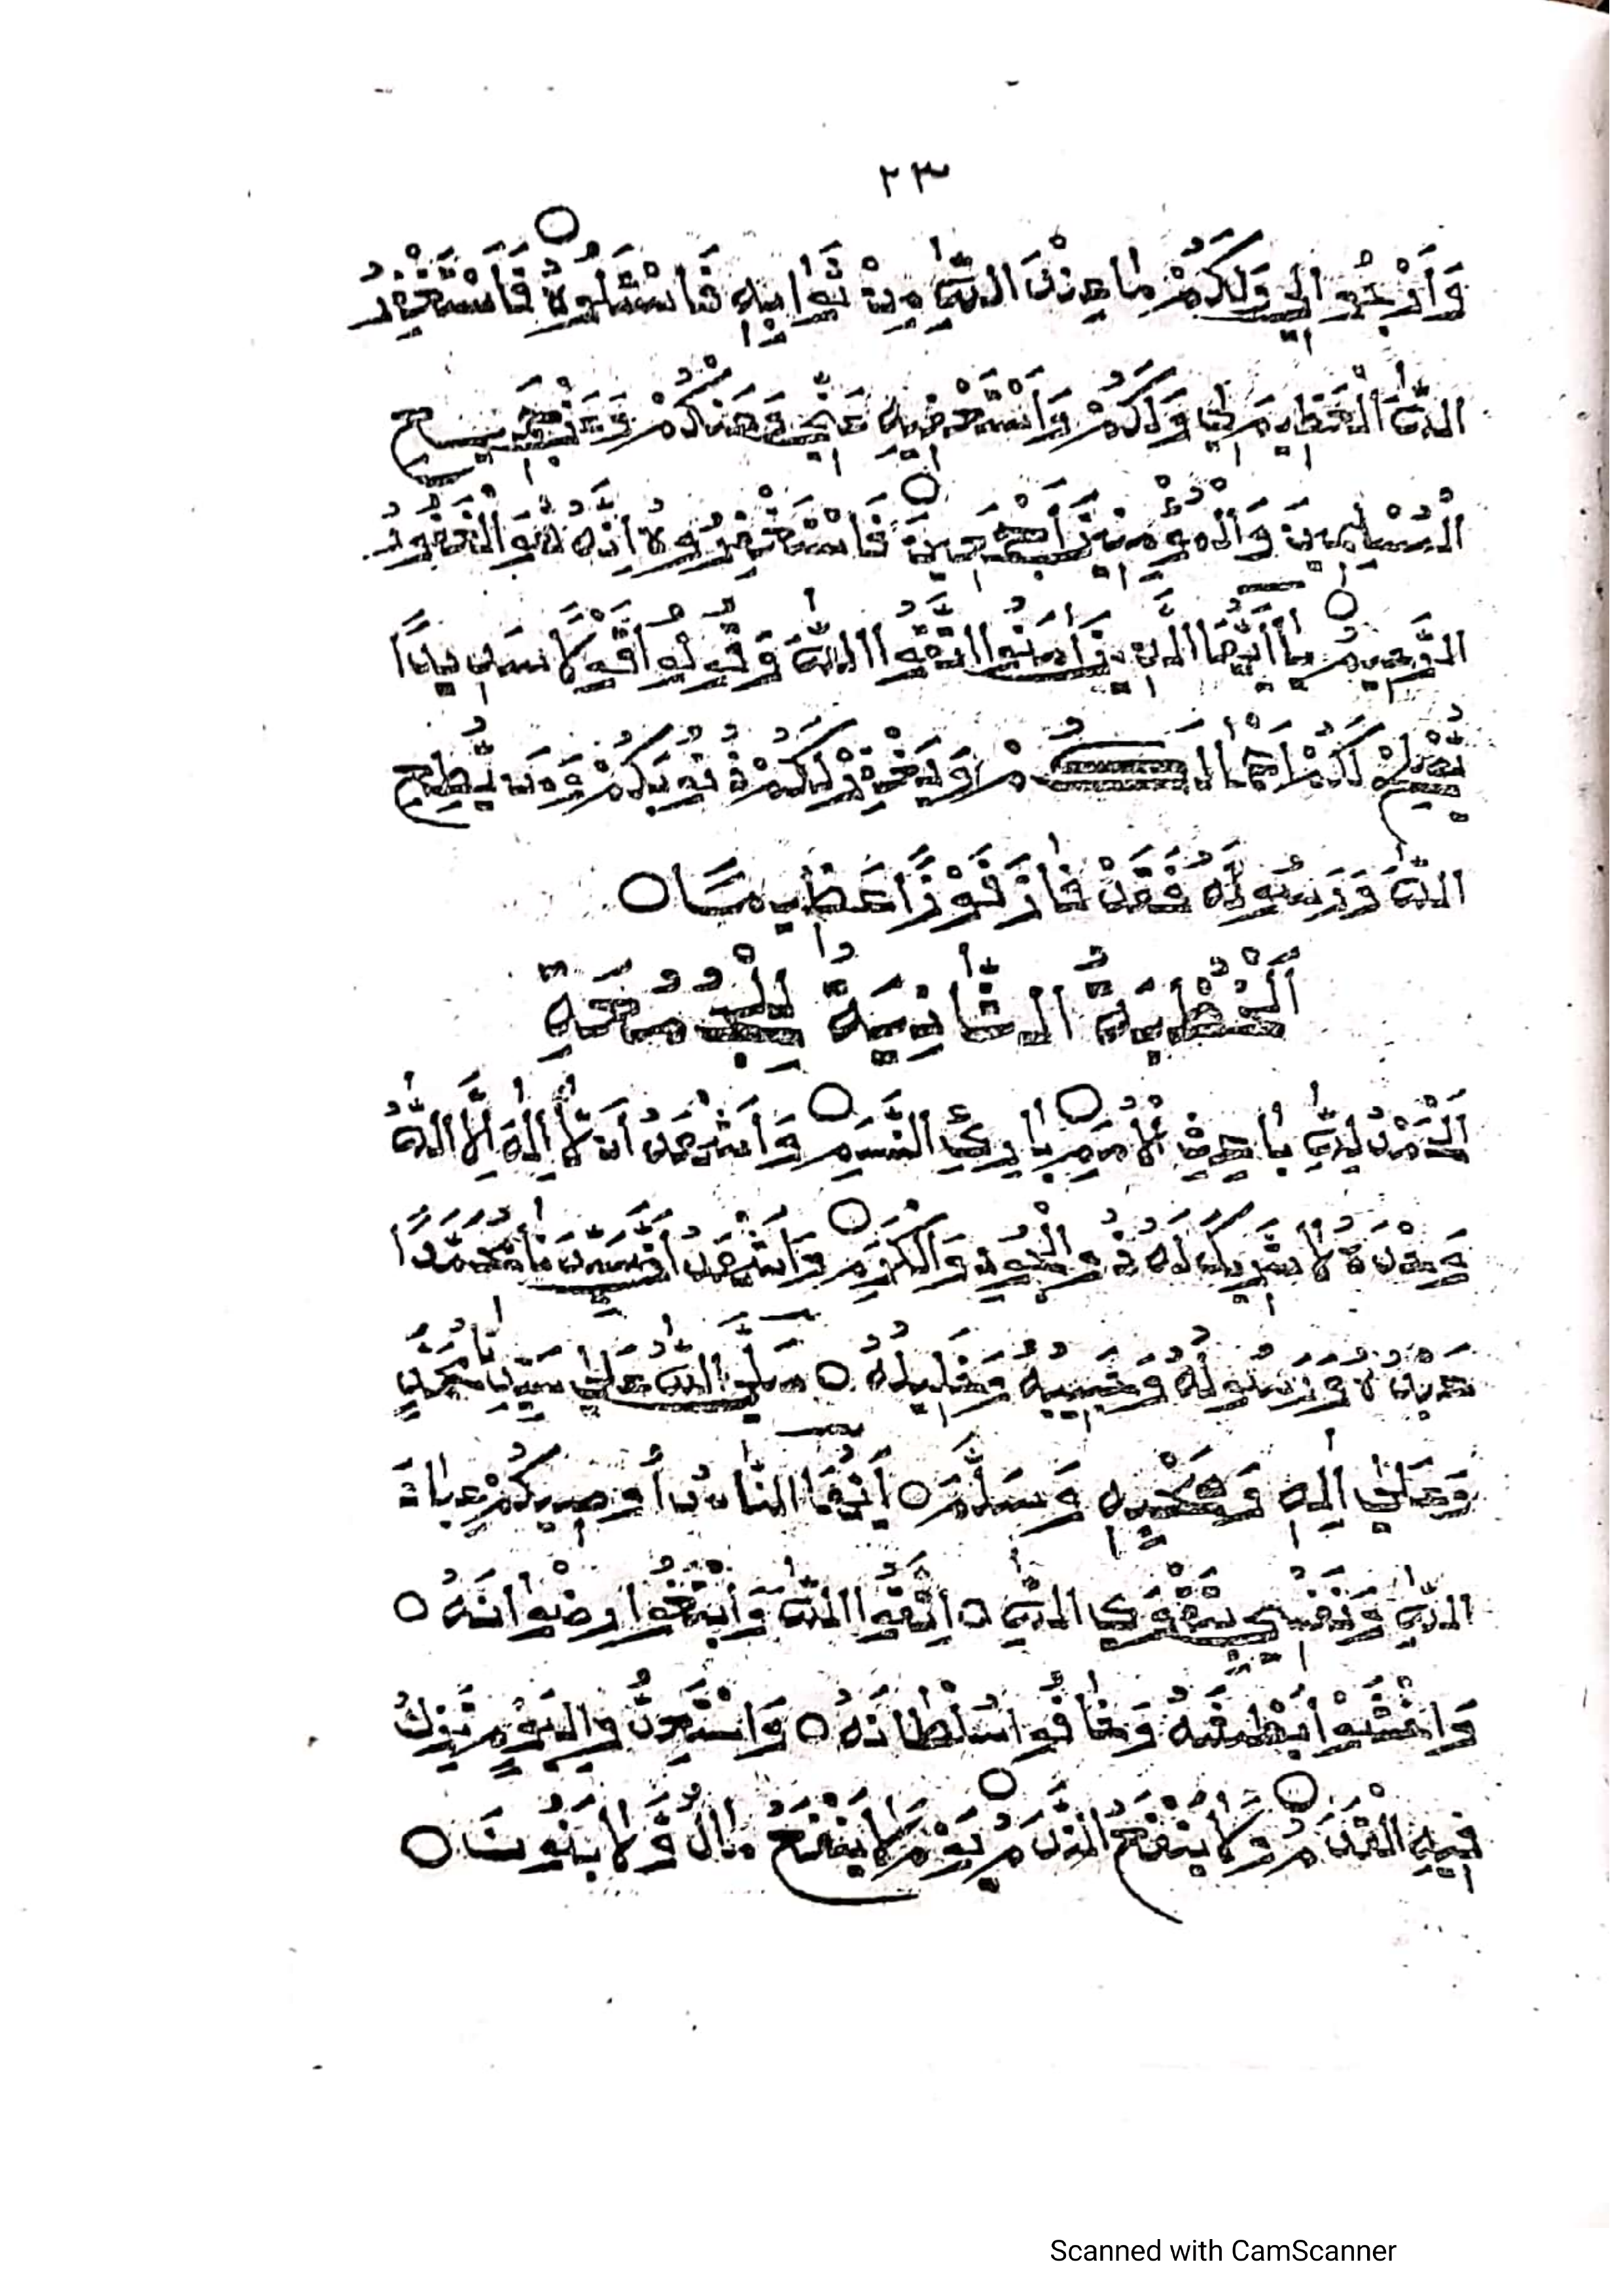 ٢٣
وَأَرْجُو لِي وَلَكُمْ مَا عِنْدَ اللّٰهِ مِنْ ثَوَابِهِ فَاسْئَلُوهُ ○ فَأَسْتَغْفِرُ
اللّٰهَ الْعَظِيمَ لِي وَلَكُمْ وَأَسْتَعْفِيهِ عَنِّي وَعَنْكُمْ وَعَنْ جَمِيعِ
الْمُسْلِمِينَ وَالْمُؤْمِنِينَ أَجْمَعِينَ ○ فَاسْتَغْفِرُوهُ إِنَّهُ هُوَ الْغَفُورُ
الرَّحِيمُ ○ يَا أَيُّهَا الَّذِينَ أٰمَنُوا اتَّقُوا اللّٰهَ وَقُولُوا قَوْلًا سَدِيدًا
يُصْلِحْ لَكُمْ أَعْمَالَكُمْ وَيَغْفِرْ لَكُمْ ذُنُوبَكُمْ وَمَنْ يُطِعِ
اللّٰهَ وَرَسُولَهُ فَقَدْ فَازَ فَوْزًا عَظِيمًا ○
اَلْخُطْبَةُ الثَّانِيَةُ لِلْجُمُعَةِ
اَلْحَمْدُ لِلّٰهِ بَاعِثِ الْأُمَمِ ○ بَارِئِ النَّسَمِ ○ وَأَشْهَدُ أَنْ لَا إِلٰهَ إِلَّا اللّٰهُ
وَحْدَهُ لَا شَرِيكَ لَهُ ذُو الْجُودِ وَالْكَرَمِ ○ وَأَشْهَدُ أَنَّ سَيِّدَنَا مُحَمَّدًا
عَبْدُهُ وَرَسُولُهُ وَحَبِيبُهُ وَخَلِيلُهُ ○ صَلَّى اللّٰهُ عَلَى سَيِّدِنَا مُحَمَّدٍ
وَعَلَى أٰلِهِ وَصَحْبِهِ وَسَلَّمَ ○ أَيُّهَا النَّاسُ أُوصِيكُمْ عِبَادَ
اللّٰهِ وَنَفْسِي بِتَقْوَى اللّٰهِ ○ اِتَّقُوا اللّٰهَ وَابْتَغُوا رِضْوَانَهُ ○
وَاخْشَوْا بَطْشَهُ وَخَافُوا سُلْطَانَهُ ○ وَاسْتَعِدُّوا لِيَوْمٍ تَزِلُّ
فِيهِ الْقَدَمُ ○ وَلَا يَنْفَعُ النَّدَمُ ○ يَوْمَ لَا يَنْفَعُ مَالٌ وَلَا بَنُونَ ○
Scanned with CamScanner